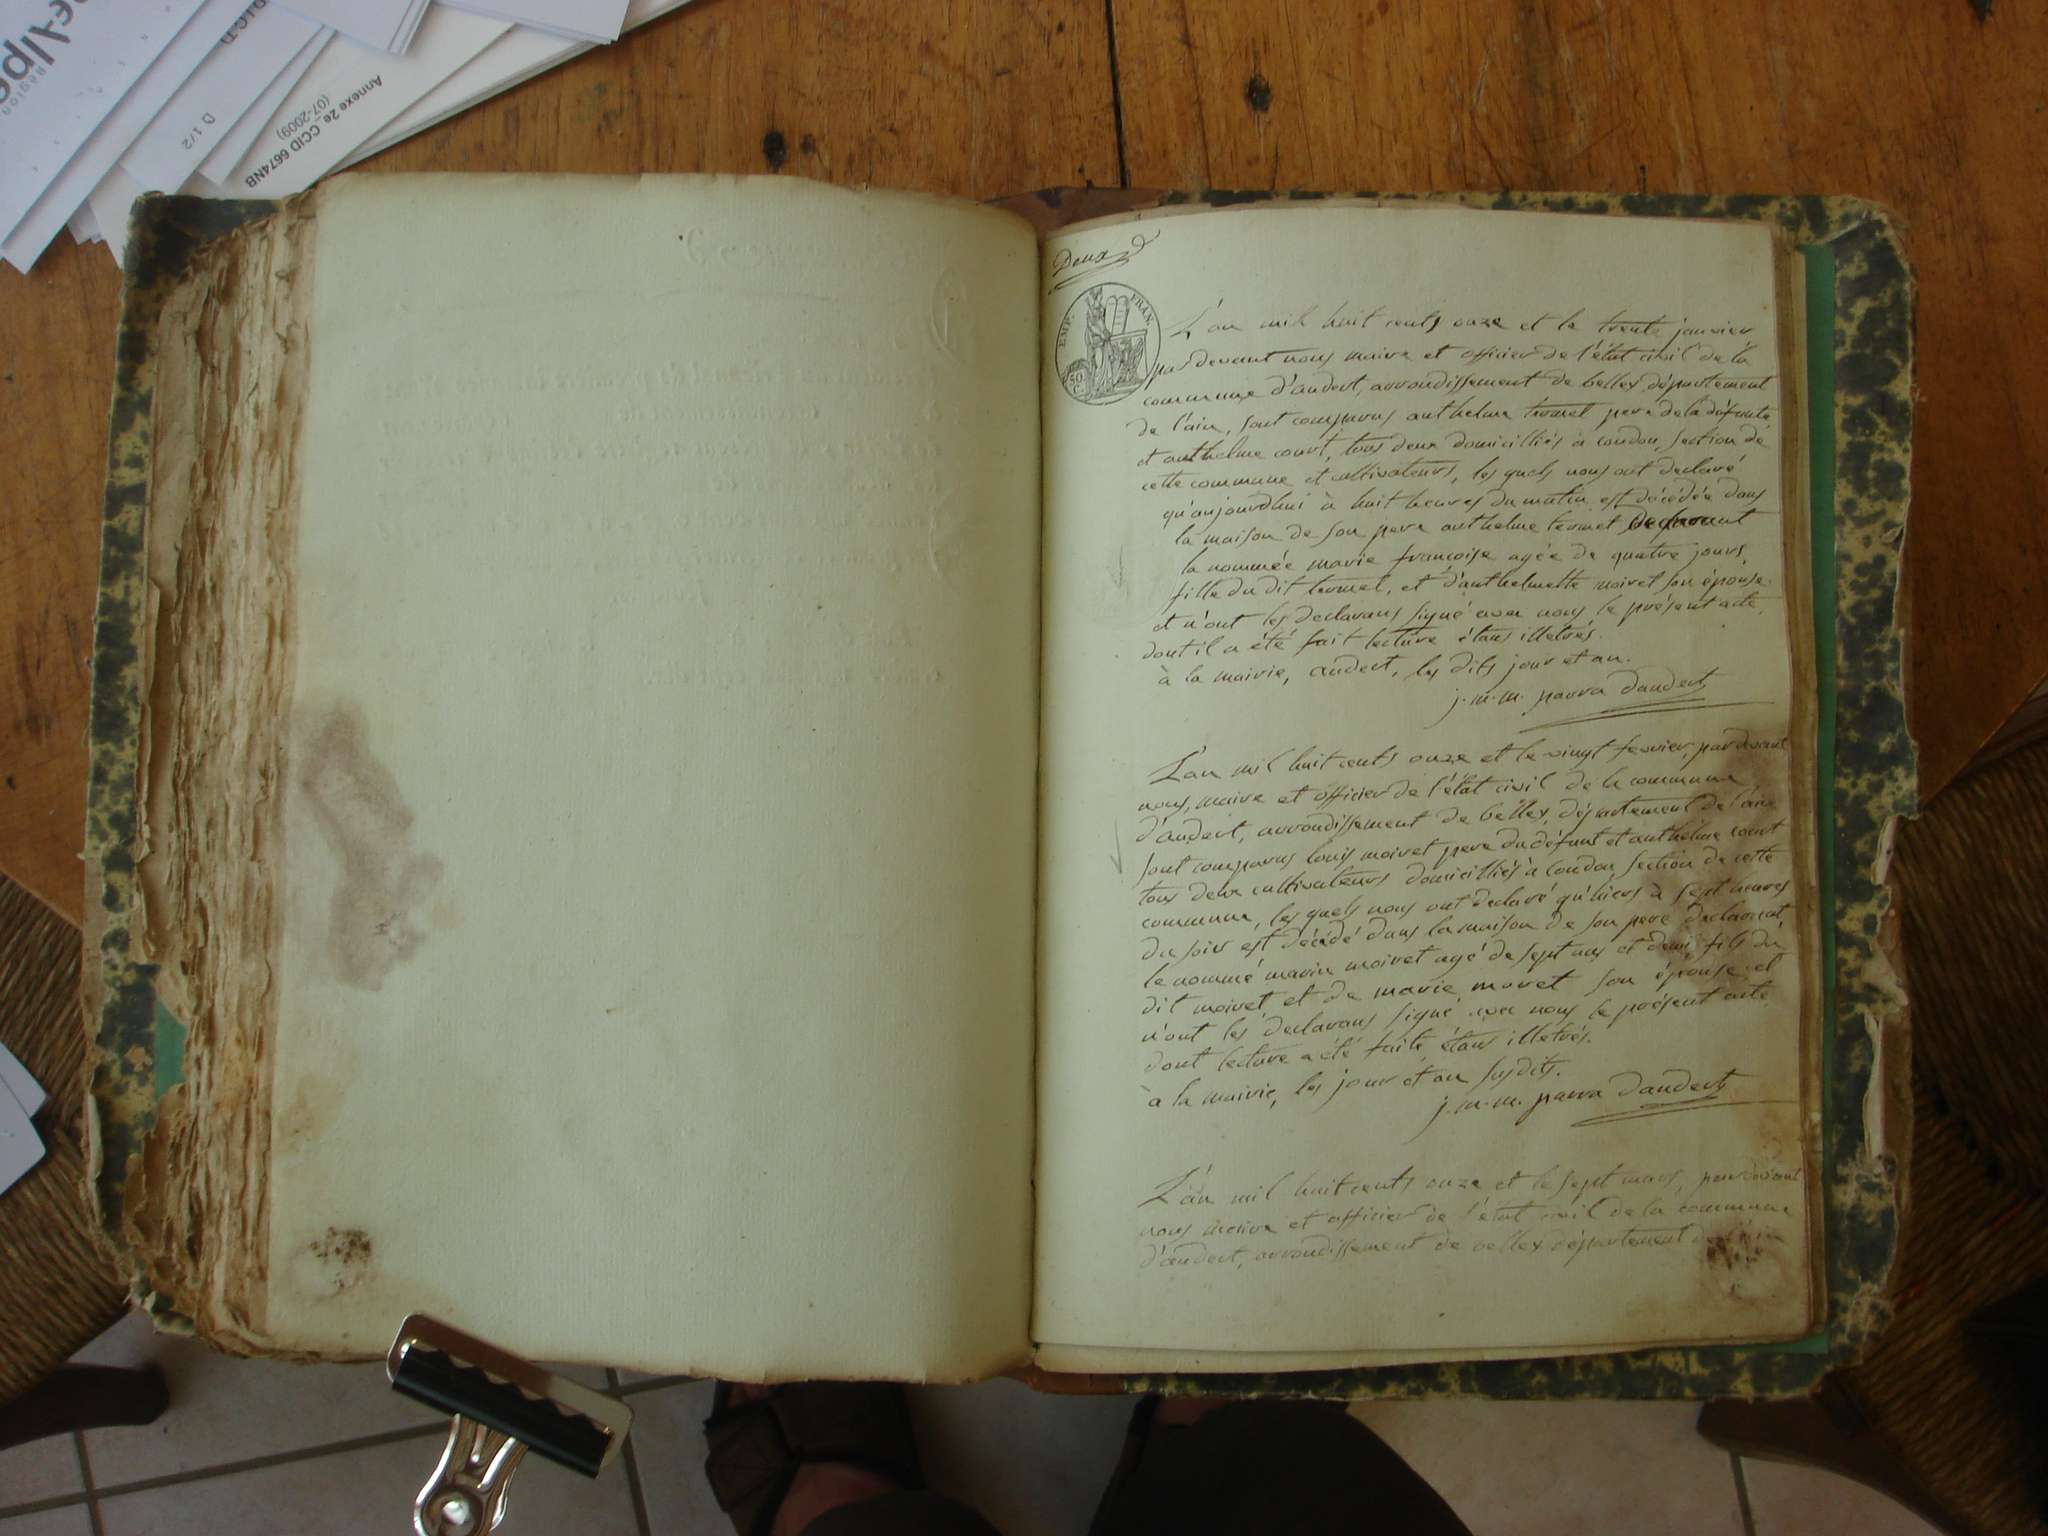 Région
D 1/2
Annexe 2e_CCID 6674NB
(07-2009)
Deux
EMP. FRAN.
50 C
L'an mil huit cents onze et le trente janvier
par devant nous maire et officier de l'état civil de la
commune d'andert, arrondissement de belley, département
de l'ain, sont comparus anthelme termet pere de la défunte
et anthelme court, tous deux domiciliés à condon, section de
cette commune et cultivateurs, les quels nous ont declaré
qu'aujourdhui à huit heures du matin est décédée dans
la maison de son pere anthelme termet declarant
la nommée marie françoise agée de quatre jours,
fille du dit termet, et d'anthelmette moiret son épouse.
et n'ont les declarans signé avec nous le présent acte,
dont il a été fait lecture étans illetrés.
à la mairie, andert, les dits jour et an.
j. m. m. parra dandert
L'an mil huit cents onze et le vingt fevrier, par devant
nous, maire et officier de l'état civil de la commune
d'andert, arrondissement de belley, département de l'ain
sont comparus louis moiret pere du défunt et anthelme court
tous deux cultivateurs domiciliés à condon, section de cette
commune, les quels nous ont declaré qu'hiers à sept heures
du soir est décédé dans la maison de son pere declarant,
le nommé marin moiret agé de sept ans et demi, fils du
dit moiret et de marie moret son épouse et
n'ont les declarans signé avec nous le présent acte,
dont lecture a été faite étans illetrés.
à la mairie, les jour et an susdits.
j. m. m. parra dandert
L'an mil huit cents onze et le sept mars, par devant
nous maire et officier de l'état civil de la commune
d'andert, arrondissement de belley département de l'ain